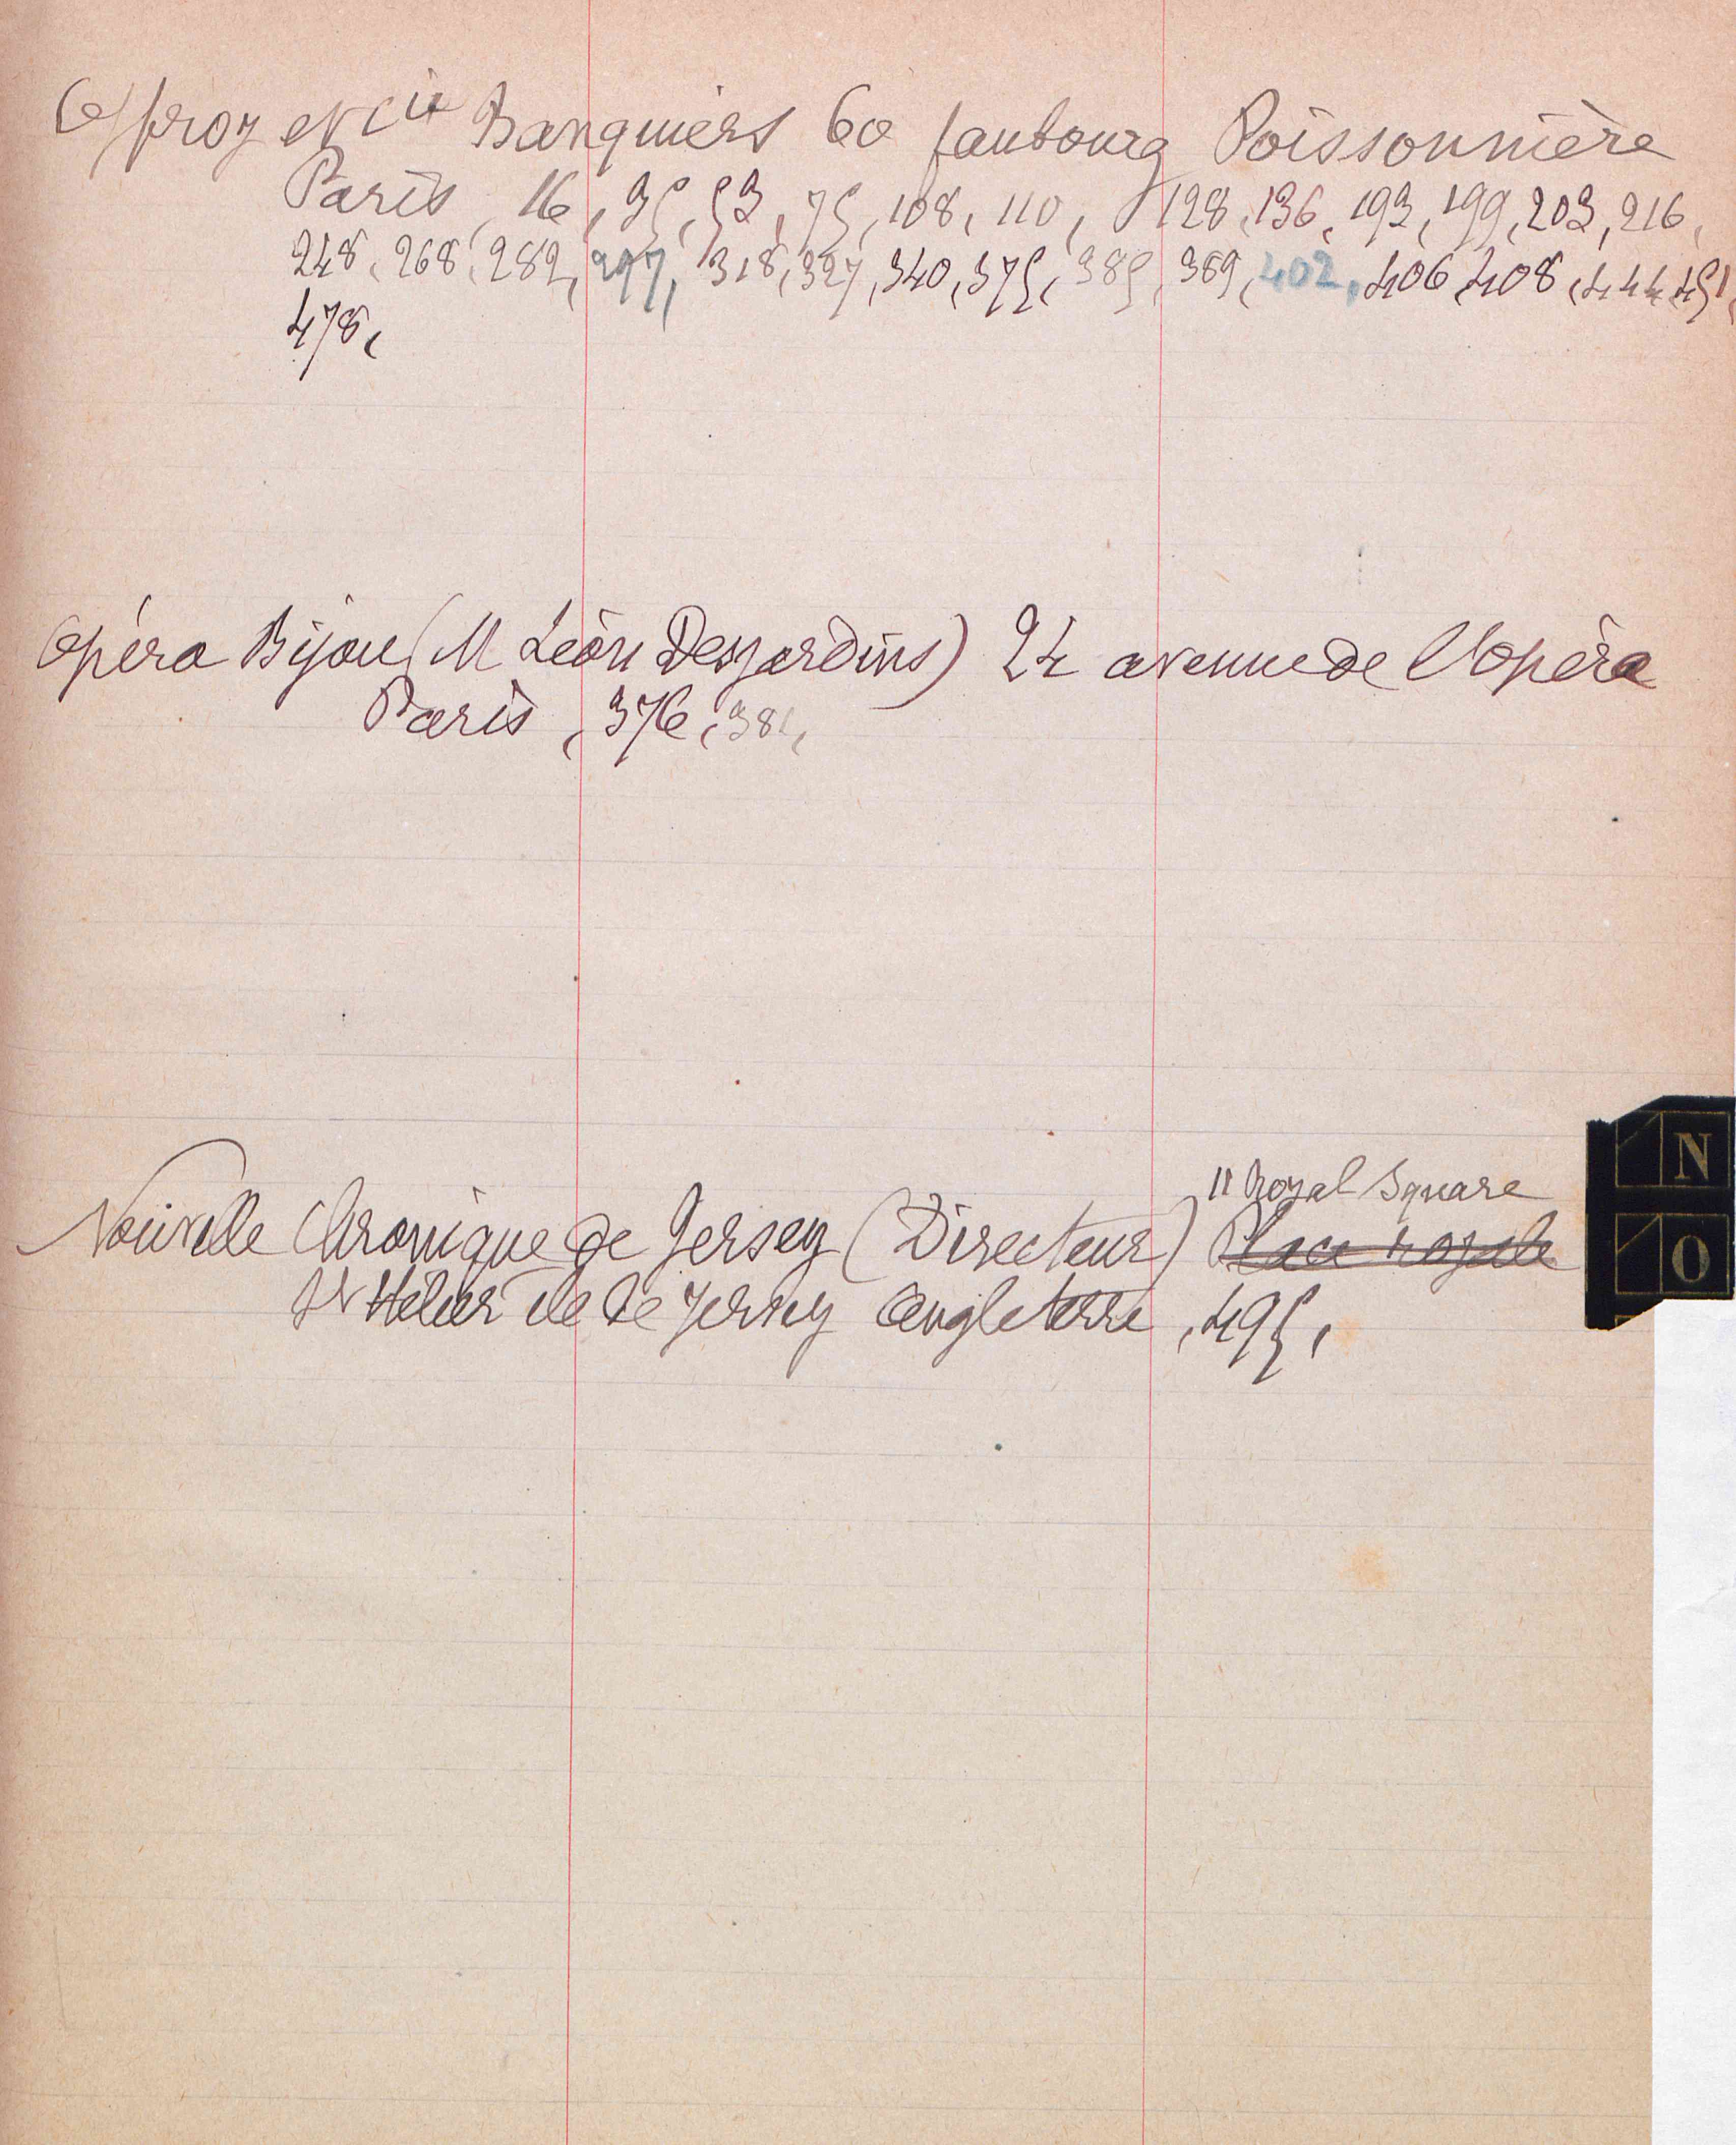 Offroy et Cie Banquiers 60 faubourg Poissonnière
Paris, 16, 35, 53, 75, 108, 110, 128, 136, 193, 199, 203, 216,
248, 268, 282, 297, 318, 327, 340, 375, 385, 389, 402, 406, 408, 444, 451,
478,
Opéra Bijou (M Léon Desjardins) 24 avenue de l'opéra
Paris, 376, 381,
11 Royal Square
Nouvelle Chronique de Jersey (Directeur) Place royale
St Hélier ile de Jersey Angleterre, 495,
N
O